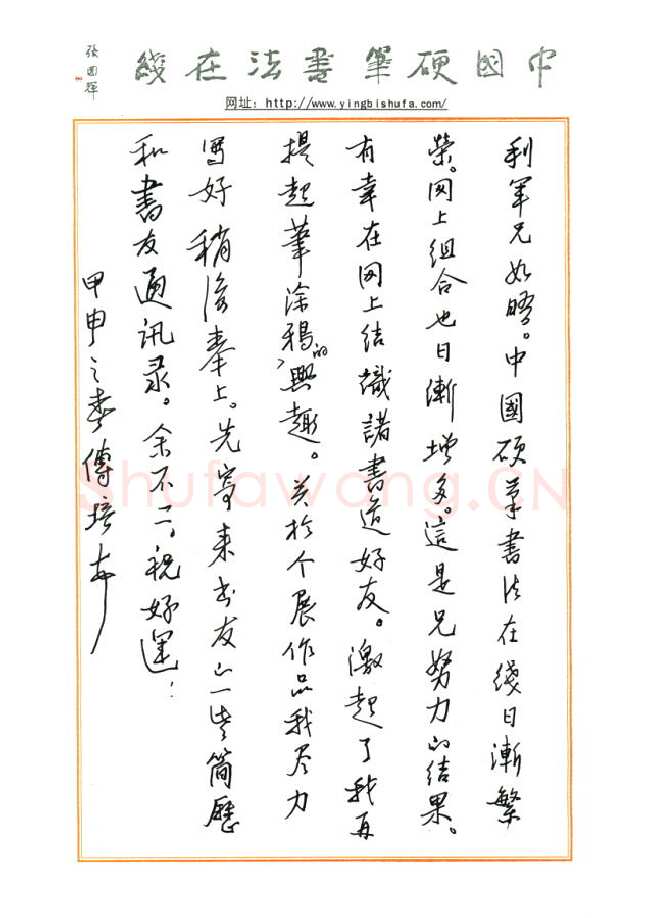 中國硬筆書法在綫
張國輝
网址：http://www.yingbishufa.com/
利軍兄如晤。中國硕筆書法在綫日漸繁
榮。网上組合也日漸增多。這是兄努力的结果。
有幸在网上结識諸書道好友。激起了我再
提起筆涂鴉的興趣。关於个展作品我尽力
写好稍后奉上。先寄来书友的一些简歷
和書友通讯录。余不二，祝好運！
甲申之春傅培奉
Shufawang.CN